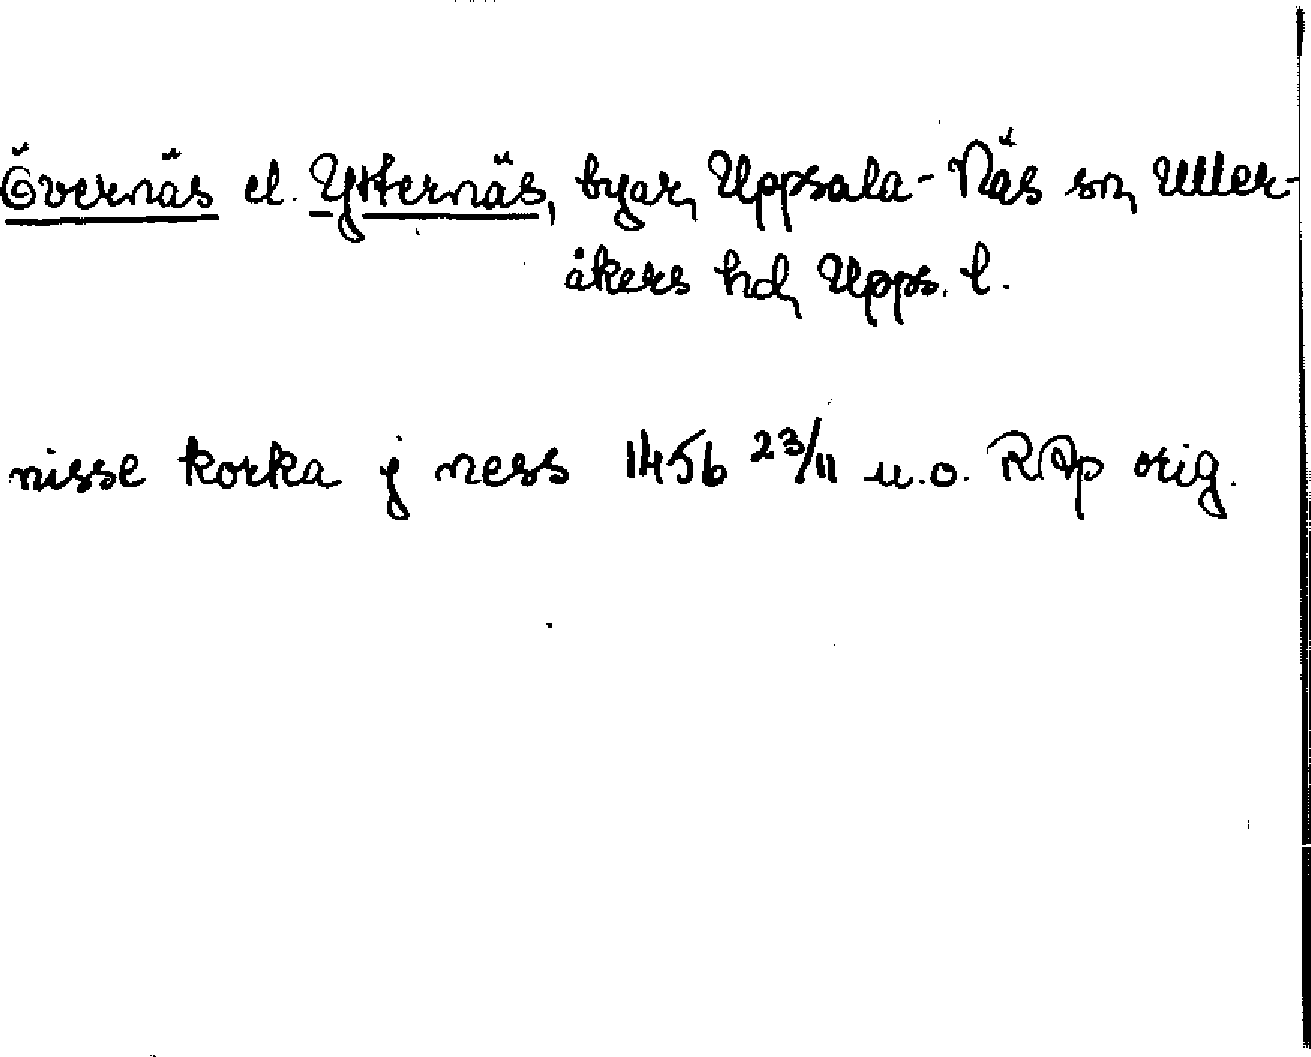 Övernäs el. Ytternäs, byar, Uppsala-Näs sn, Uller-
åkers hd, Upps. l.
nisse korka j ness 1456 23/11 u.o. RAp orig.